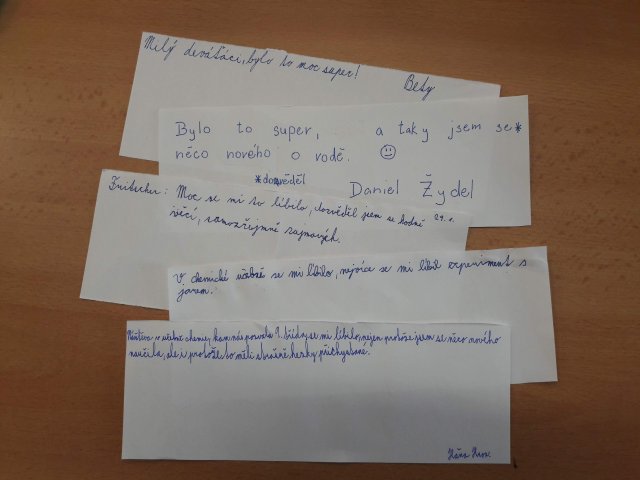 Milý deváťáci, bylo to moc super!
Bety
Bylo to super, a taky jsem se*
něco nového o vodě. ☺
*dozvěděl
Daniel Žydel
Fritscher: Moc se mi to líbilo, dozvěděl jsem se hodně 29.1.
věcí, samozřejmně zajmavých.
V chemické učebně se mi líbilo, nejvíce se mi líbil experiment s
jarem.
v učebně chemie, kam nás pozvala 9. třída, se mi líbilo, nejen protože jsem se něco nového
naučila, ale i protože to měli strašně hezky přichystané.